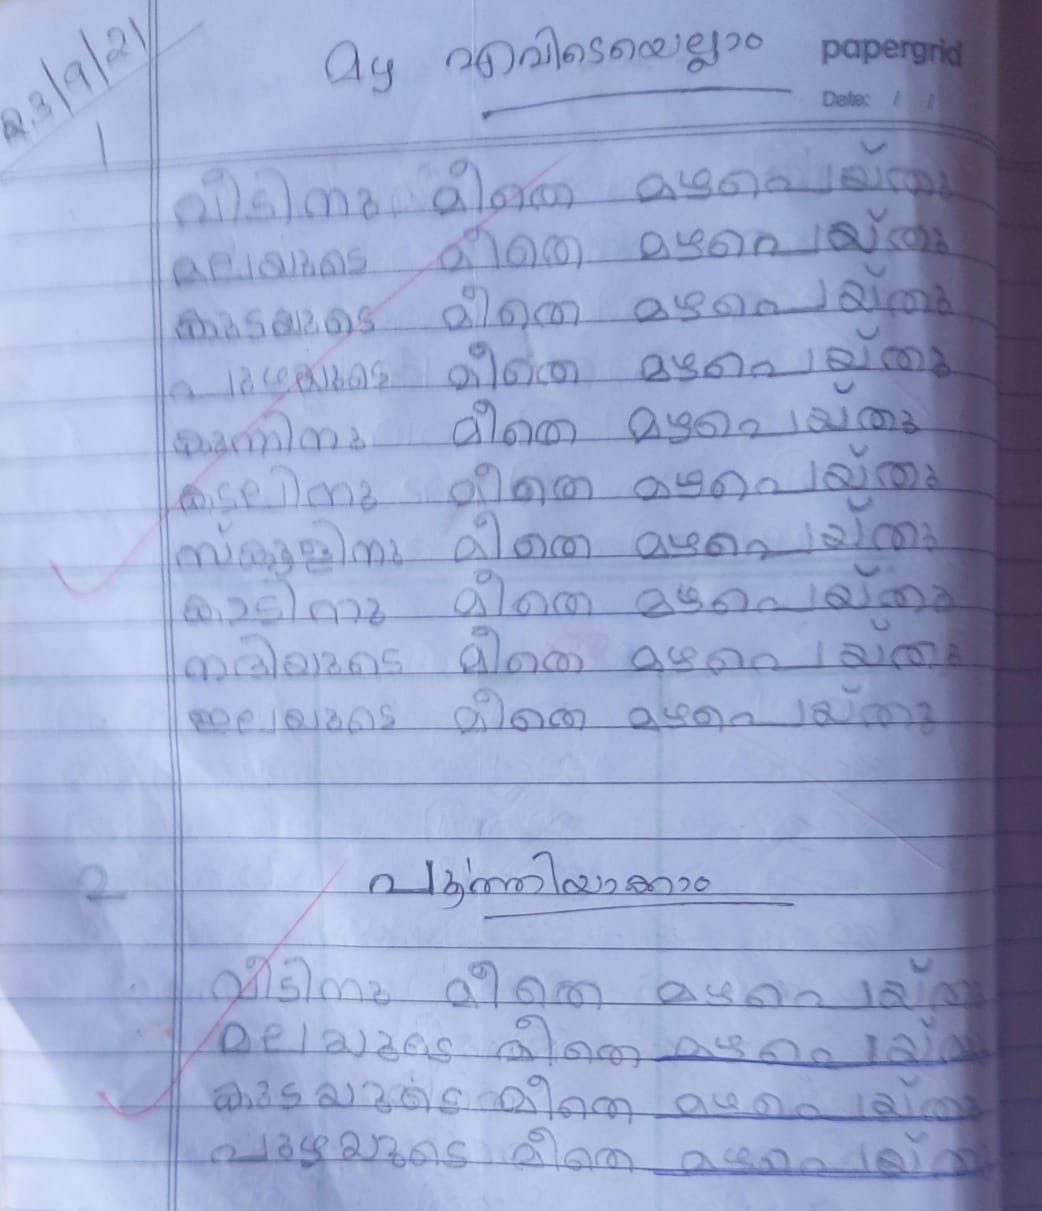 23/9/21
മഴ എവിടെയെല്ലാം
papergrid
Date: / /
1
വീടിനു മീതെ മഴപെയ്തു
മലയുടെ മീതെ മഴപെയ്തു
കുടയുടെ മീതെ മഴപെയ്തു
പുഴയുടെ മീതെ മഴപെയ്തു
കുന്നിനു മീതെ മഴപെയ്തു
കടലിനു മീതെ മഴപെയ്തു
സ്കൂളിനു മീതെ മഴപെയ്തു
കാടിനു മീതെ മഴപെയ്തു
നദിയുടെ മീതെ മഴപെയ്തു
മീതെ മഴപെയ്തു
2
വീടിനു മീതെ മഴപെയ്തു
മലയുടെ മീതെ മഴപെയ്തു
കുടയുടെ മീതെ മഴപെയ്തു
പുഴയുടെ മീതെ മഴപെയ്തു